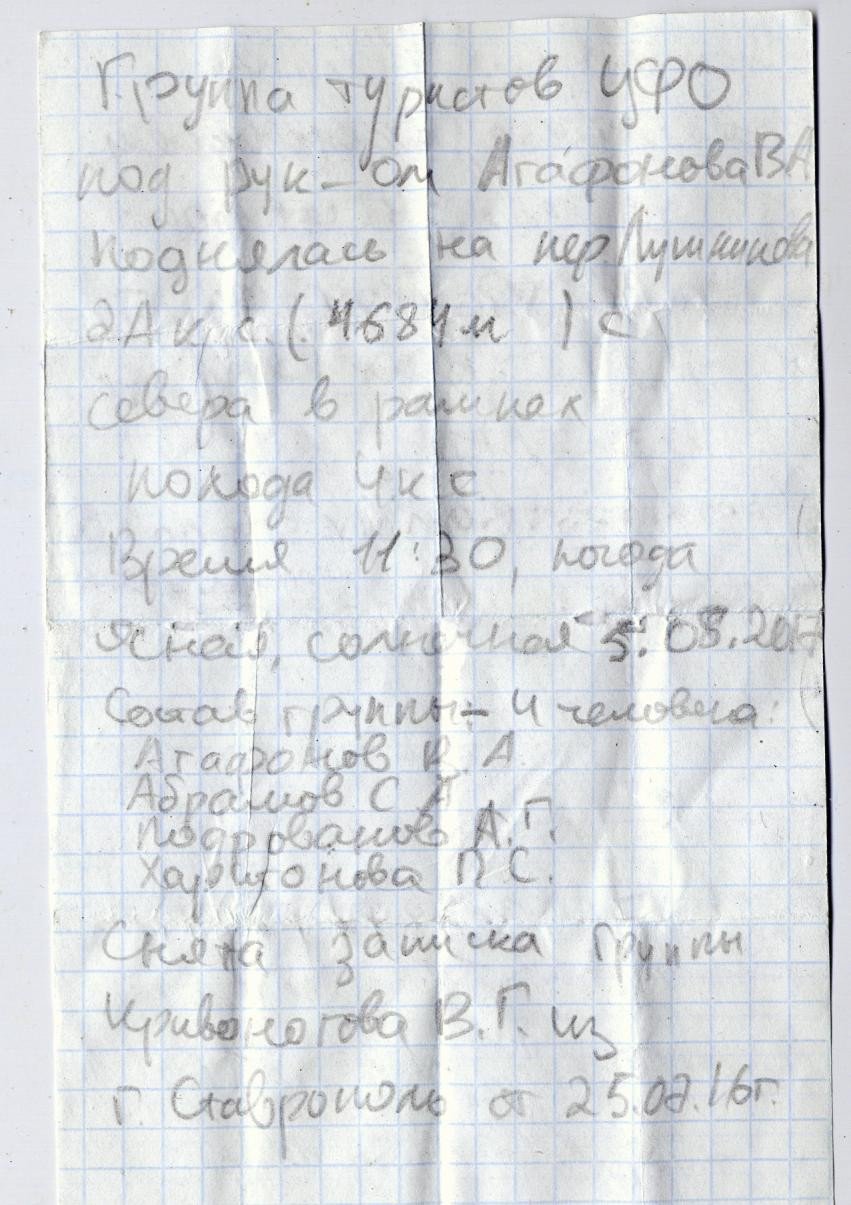 Группа туристов ЦФО
под рук-ом Агафонова ВА
поднялась на пер Лушникова
2А к.с. (4684м ) с
севера в рамках
похода 4 к.с.
Время 11:30, погода
ясная, солнечная 5.08.2017
Состав группы – 4 человека:
Агафонов В. А
Абрамов С А
Подрованов А.Г.
Харитонова П С.
Снята записка группы
Кривоногова В.Г. из
г. Ставрополь от 25.07.16г.